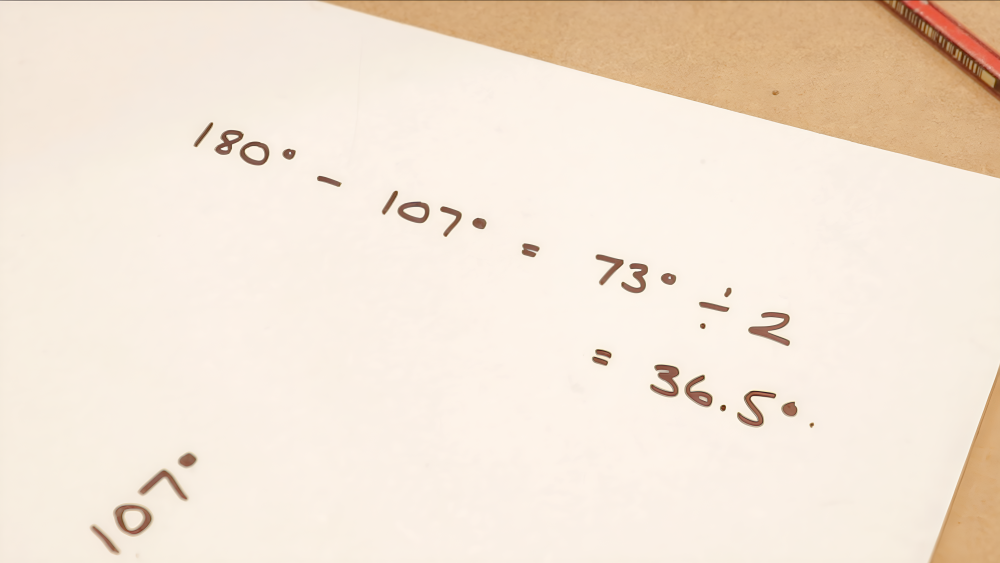 180° - 107° = 73° ÷ 2
= 36.5°.
107°